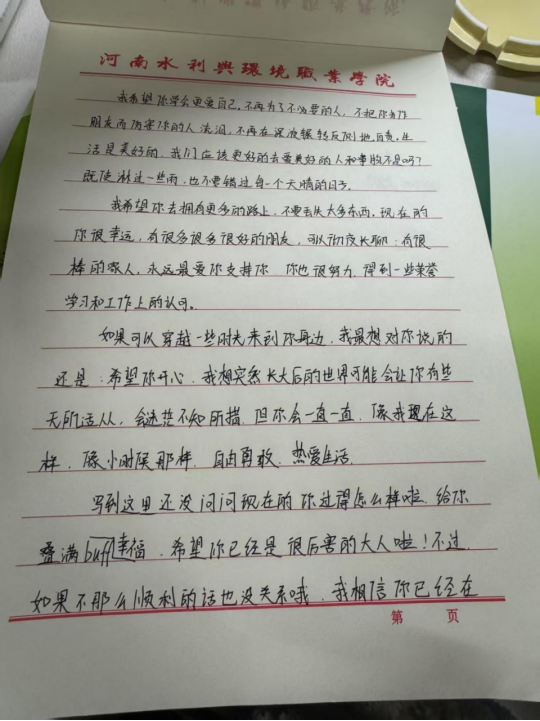 河南水利與環境職業學院
我希望你学会更爱自己,不再为了不必要的人,不把你当作
朋友而伤害你的人流泪,不再在深夜辗转反侧地自责,生
活是美好的,我们应该更好的去爱美好的人和事物不是吗?
既使淋过一些雨,也不要错过每一个天晴的日子。
我希望你去拥有更多的路上,不要丢失太多东西,现在的
你很幸运,有很多很多很好的朋友,可以彻夜长聊:有很
棒的家人,永远最爱你支持你,你也很努力,得到一些荣誉
学习和工作上的认可。
如果可以穿越一些时光来到你身边,我最想对你说的
还是:希望你开心,我想突然长大后的世界可能会让你有些
无所适从,会迷茫不知所措,但你会一直一直,像我现在这
样,像小时候那样,自由勇敢,热爱生活,
写到这里还没问问现在的你过得怎么样啦,给你
叠满buff幸福,希望你已经是很厉害的大人啦!不过
如果不那么顺利的话也没关系哦,我相信你已经在
第 页